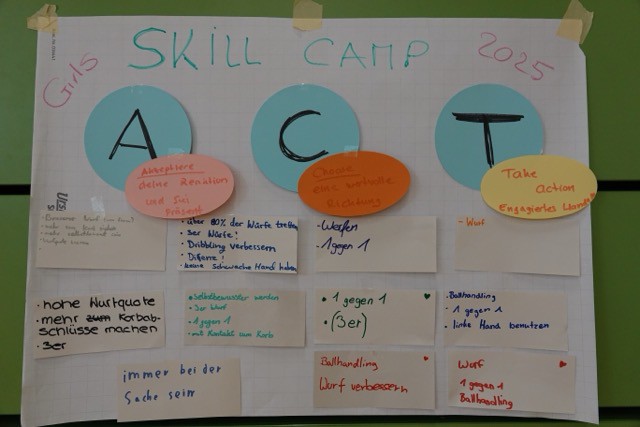 Girls
SKILL CAMP
2025
A
C
T
Akzeptiere
deine Reaktion
und Sei
Präsent
Choose
eine wertvolle
Richtung
Take
action
Engagiertes
über 80% der Würfe treffen
3er Würfe!
Dribbling verbessern
Difense!
keine schwache Hand haben
- Werfen
- 1 gegen 1
- Wurf
• hohe Wurfquote
• mehr Korbab-
schlüsse machen
• 3er
• Selbstbewusster werden
• 3er Wurf
• 1 gegen 1
• mit Kontakt zum Korb
• 1 gegen 1
• (3er)
• Ballhandling
• 1 gegen 1
• linke Hand benutzen
immer bei der
Sache sein
Ballhandling
Wurf verbessern
Wurf
1 gegen 1
Ballhandling